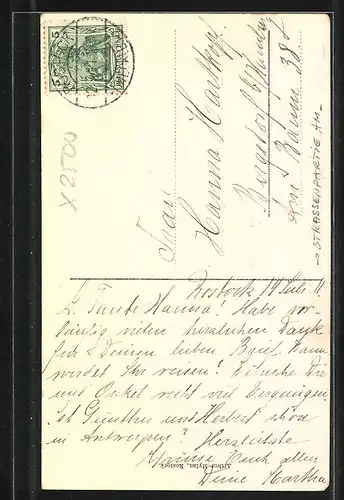 Frau
Hanna Hartkopf
Bergedorf b/Hamburg
Am Baum 38
→ STRASSENPARTIE AM
X25700
Rostock, 14 Juli 11
L. Tante Hanna! Habe vor-
läufig vielen herzlichen Dank
für Deinen lieben Brief. Wann
werdet Ihr reisen? Wünsche Dir
und Onkel recht viel Vergnügen.
Ist Günther und Herbert schön
in Antwerpen? Herzlichste
Grüsse Euch allen
Deine Martha